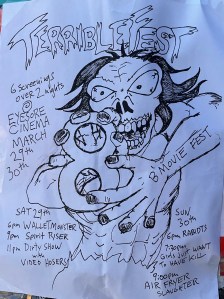 TERRIBLE FEST
6 Screenings
over 2 nights
@
EYESORE
CINEMA
MARCH
29th
30th
B MOVIE FEST
SAT 29th
6pm WALLETMONSTER
9pm Spirit RISER
11pm Dirty SHOW
with
VIDEO HOSERS
SUN
30th
6pm ROBOTS
7:30pm
Girls JUST WANT
TO HAVE KILL
9:00pm
AIR FRYER
SLAUGHTER